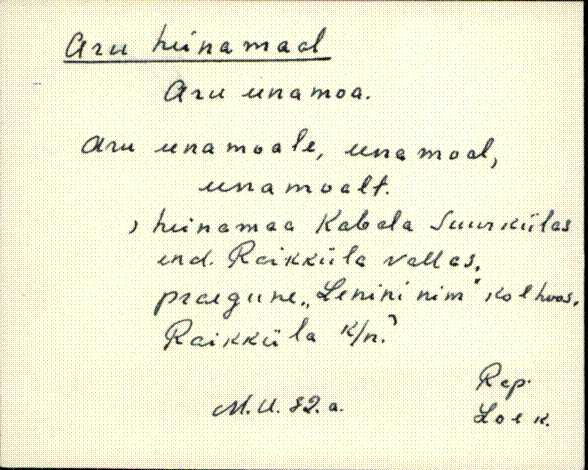 Aru heinamaal
Aru unamoa.
Aru unamoale, unamoal,
unamoalt.
, heinamaa Kabala Suurkülas
end. Raikküla vallas,
praegune „Lenini nim" kolhoos,
Raikküla k/n.'
Rap.
M.U. 82.a.
Loe k.